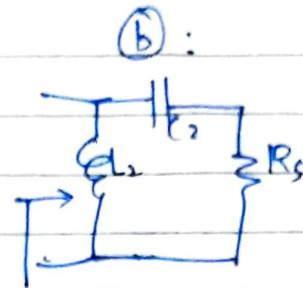 ⓑ :
C₂
L₂
R₅